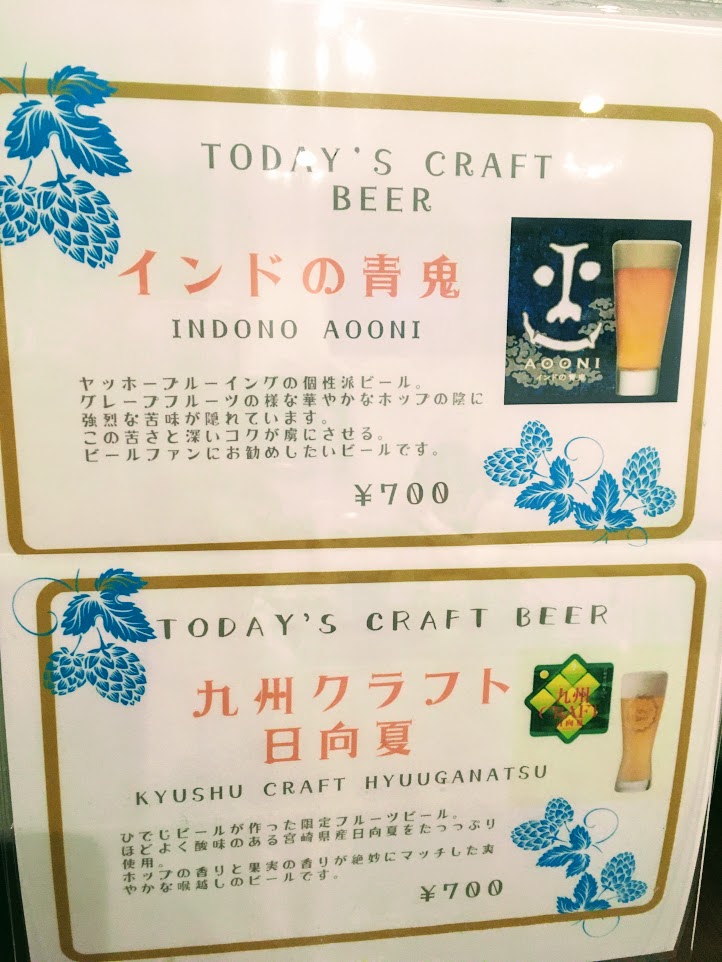 TODAY'S CRAFT
BEER
インドの青鬼
INDONO AOONI
AOONI
インドの青鬼
ヤッホーブルーイングの個性派ビール。
グレープフルーツの様な華やかなホップの陰に
強烈な苦味が隠れています。
この苦さと深いコクが虜にさせる。
ビールファンにお勧めしたいビールです。
¥700
TODAY'S CRAFT BEER
九州クラフト
日向夏
九州
CRAFT
日向夏
KYUSHU CRAFT HYUUGANATSU
ひでじビールが作った限定フルーツビール。
ほどよく酸味のある宮崎県産日向夏をたっっぷり
使用。
ホップの香りと果実の香りが絶妙にマッチした爽
やかな喉越しのビールです。
¥700